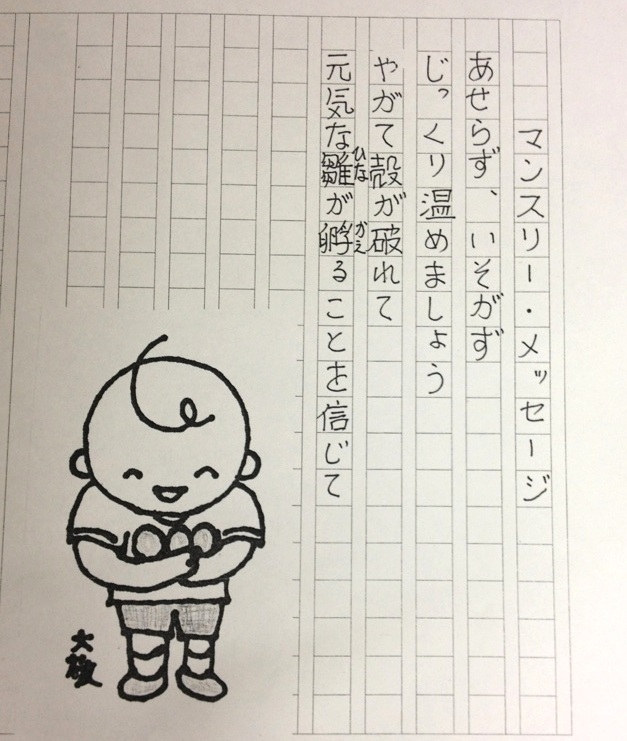 マンスリー・メッセージ
あせらず、いそがず
じっくり温めましょう
やがて殻が破れて
元気な雛が孵ることを信じて
ひな
がえ